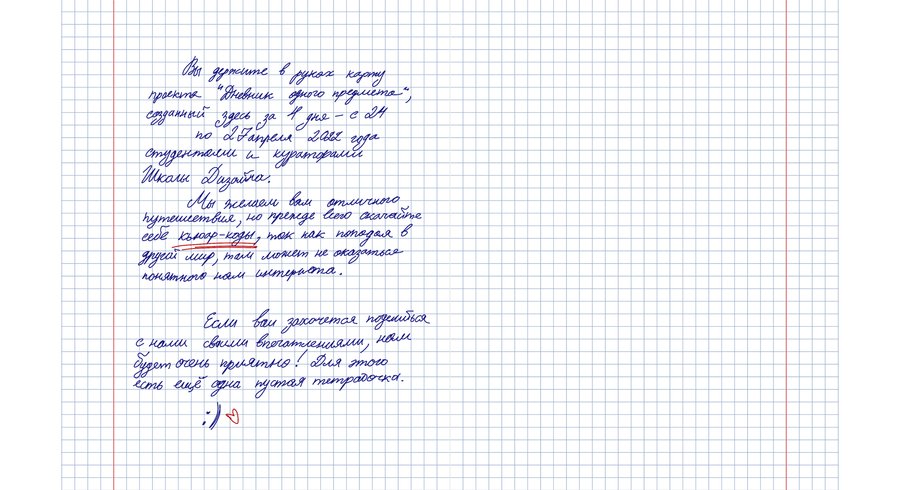 Вы держите в руках карту
проекта "Дневник одного предмета",
созданный здесь за 4 дня - с 24
по 27 апреля 2022 года
студентами и кураторами
Школы Дизайна.
Мы желаем вам отличного
путешествия, но прежде всего скачайте
себе кьюар-коды, так как попадая в
другой мир, там может не оказаться
понятного нам интернета.
Если вам захочется поделиться
с нами своими впечатлениями, нам
будет очень приятно! Для этого
есть ещё одна пустая тетрадочка.
:))